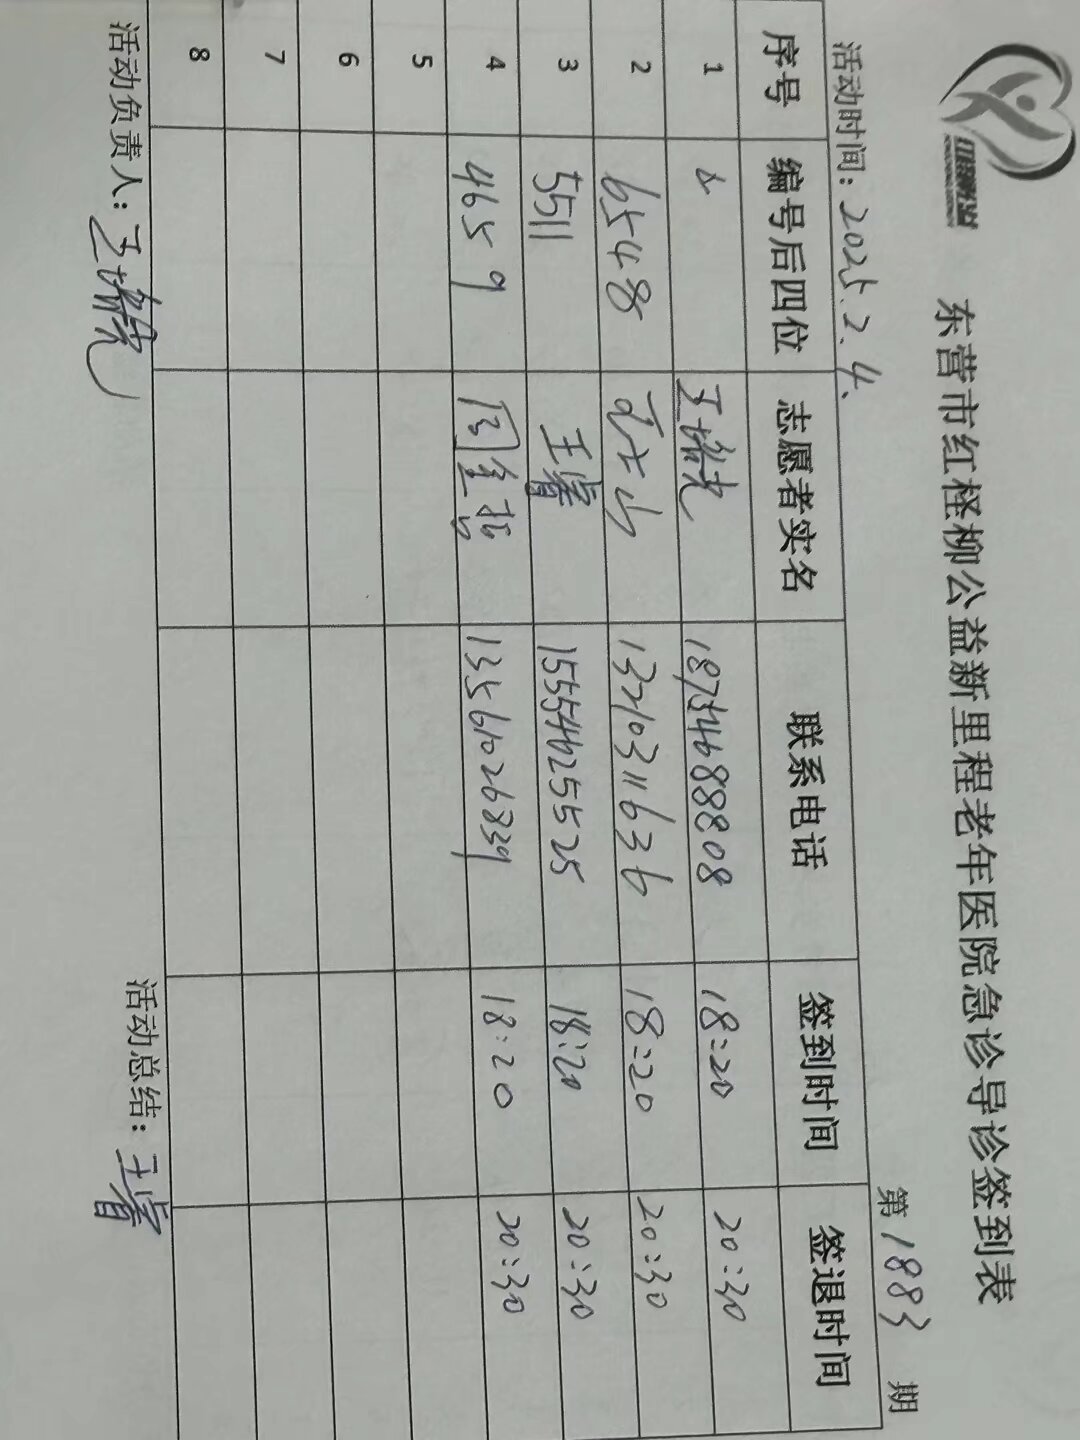 东营市红柽柳公益新里程老年医院急诊导诊签到表
活动时间：2025.2.4. 第1883期
序号 编号后四位 志愿者实名 联系电话 签到时间 签退时间
1 18754688808 18:20 20:30
2 6548 13210311636 18:20 20:30
3 5511 王睿 15554625525 18:20 20:30
4 4659 13561026839 18:20 20:30
5
6
7
8
活动负责人： 活动总结：王睿